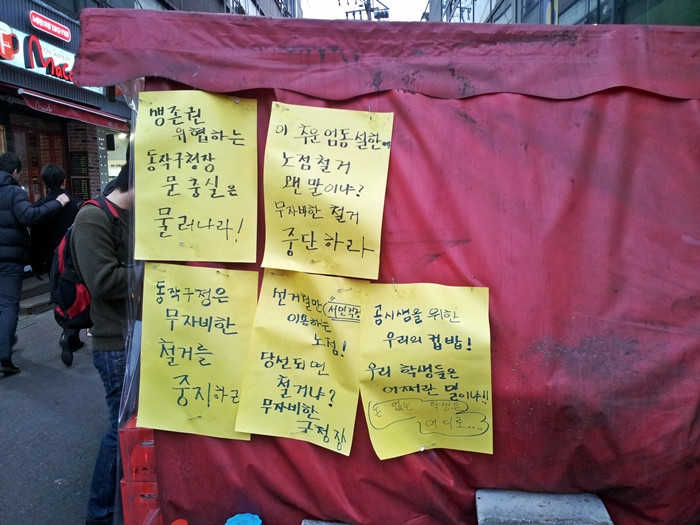 생존권
위협하는
동작구청장
문충실은
물러나라!
이 추운 엄동설한
노점철거
왠 말이냐?
무자비한 철거
중단하라
동작구청은
무자비한
철거를
중지하라
선거철만
서민걱정
이용하는
노점!
당선되면
철거냐?
무자비한
구청장
공시생을 위한
우리의 컵밥!
우리 학생들은
어쩌란 말이냐!!
돈 없는 학생은
어디로....